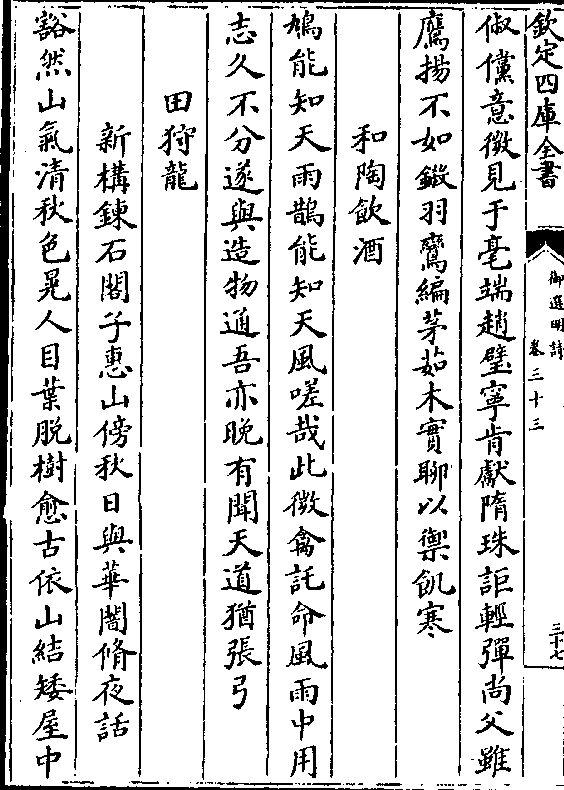 欽定四庫全書
御選明詩
卷三十三
三十七
俶儻意微見于毫端趙璧寧肯獻隋珠詎輕彈尚父雖
鷹揚不如鎩羽鸞編茅茹木實聊以禦飢寒
和陶飲酒
鳩能知天雨鵲能知天風嗟哉此微禽託命風雨中用
志久不分遂與造物通吾亦晩有聞天道猶張弓
田狩龍
新構鍊石閣子惠山傍秋日與華闇脩夜話
豁然山氣清秋色晃人目葉脱樹愈古依山結矮屋中